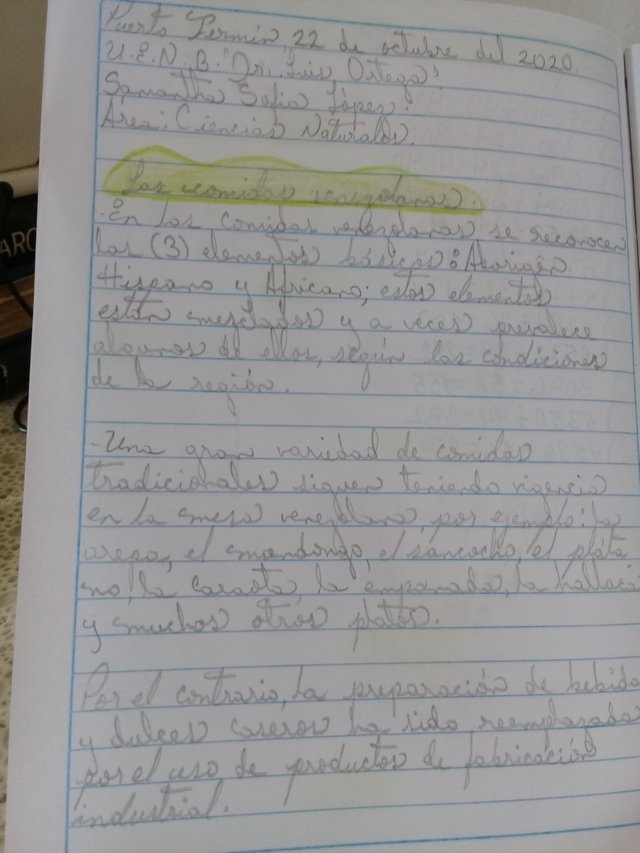 Puerto Fermín, 22 de octubre del 2020.
U.E.N.B. "Dr. Luis Ortega".
Samantha Sofia López.
Área: Ciencias Naturales.
Las comidas venezolanas.
-En las comidas venezolanas se reconocen
los (3) elementos básicos: Aborigen
Hispano y Africano; estos elementos
están mezclados y a veces prevalece
algunos de ellos, según las condiciones
de la región.
-Una gran variedad de comidas
tradicionales siguen teniendo vigencia
en la mesa venezolana, por ejemplo: la
arepa, el mondongo, el sancocho, el plata
no, la caraota, la empanada, la hallaca
y muchos otros platos.
Por el contrario, la preparación de bebida
y dulces caseros ha sido reemplazada
por el uso de productos de fabricación
industrial.
ARC